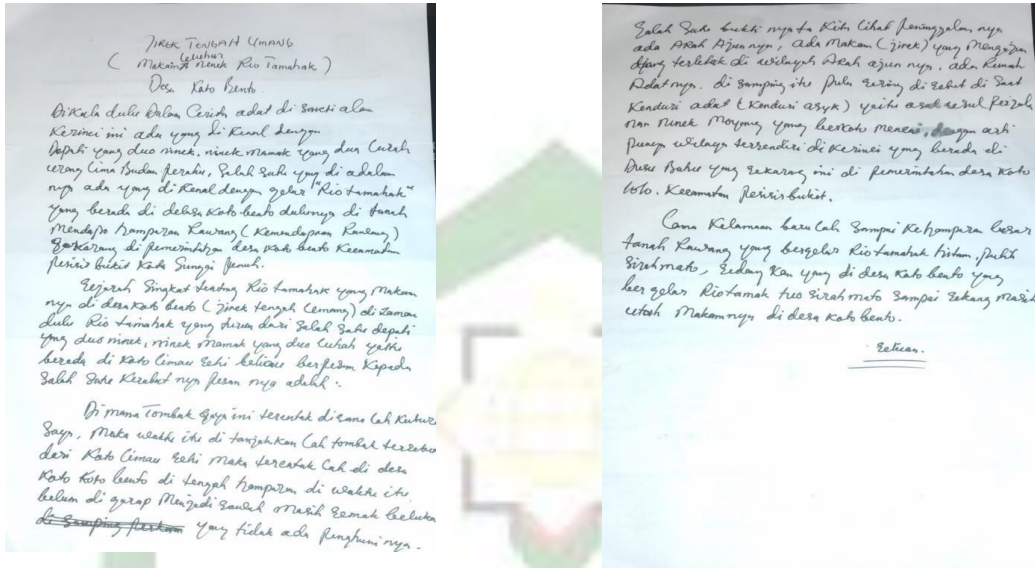 JIREK TENGAH UMANG
Leluhur
( Makamnya Nenek Rio Tamahak )
Desa Koto Bento.
Dikala dulu dalam cerita adat di sakti alam
Kerinci ini ada yang di Kenal dengan
Depati yang duo ninek, ninek mamak yang dua Lurah
orang Lima Budan peraku, Salah Satu yang di adalam
nya ada yang di kenal dengan gelar "Rio tamahak"
yang berada di debsa koto bento dulunya di tanah
Mendapo hamparan Rawang ( Kemendapoan Rawang )
Sekarang di pemerintahan desa koto bento Kecamatan
pesisir bukit Kota Sungai penuh.
Sejarah Singkat tentang Rio tamahak yang Makam
nya di desa koto bento ( jirek tengah Umang ) di Zaman
dulu Rio tamahak yang turun dari Salah Satu depati
yang duo ninek, ninek mamak yang duo Lurah yaitu
berada di Koto Limau Sehi beliau berpesan Kepada
Salah Satu Kerabat nya pesan nya adalah :
Di mana Tombak Saya ini terentak disana Lah Kubur
Saya, Maka waktu itu di tanjahkan Lah tombak tersebut
dari Koto Limau Sehi Maka terentak Lah di desa
Koto Koto bento di tengah hamparan di waktu itu
belum di garap Menjadi Sawah Masih Semak belukar
yang tidak ada penghuni nya.
Salah Satu bukti nya ta Kita Lihat peninggalan nya
ada Arah Ajun nya, ada Makam ( jirek ) yang
yang terletak di wilayah Arah ajun nya, ada Rumah
Adat nya. di Samping itu pula Sering di Sebut di Saat
Kenduri adat ( Kenduri asyk ) yaitu asal usul
nan ninek Moyang yang berkato dengan arti
punya wilayah tersendiri di Kerinci yang berada di
Dusun Baru yang Sekarang ini di pemerintahan desa Koto
Lolo. Kecamatan pesisir bukit.
Lama Kelamaan baru Lah Sampai Ke hamparan besar
tanah Rawang yang bergelar Rio tamahak hitam, putih
Sirah mato, Sedang Kan yang di desa Koto bento yang
ber gelar Rio tamak tuo Sirah mato Sampai Sekang Masih
utoh Makam nya di desa Koto bento.